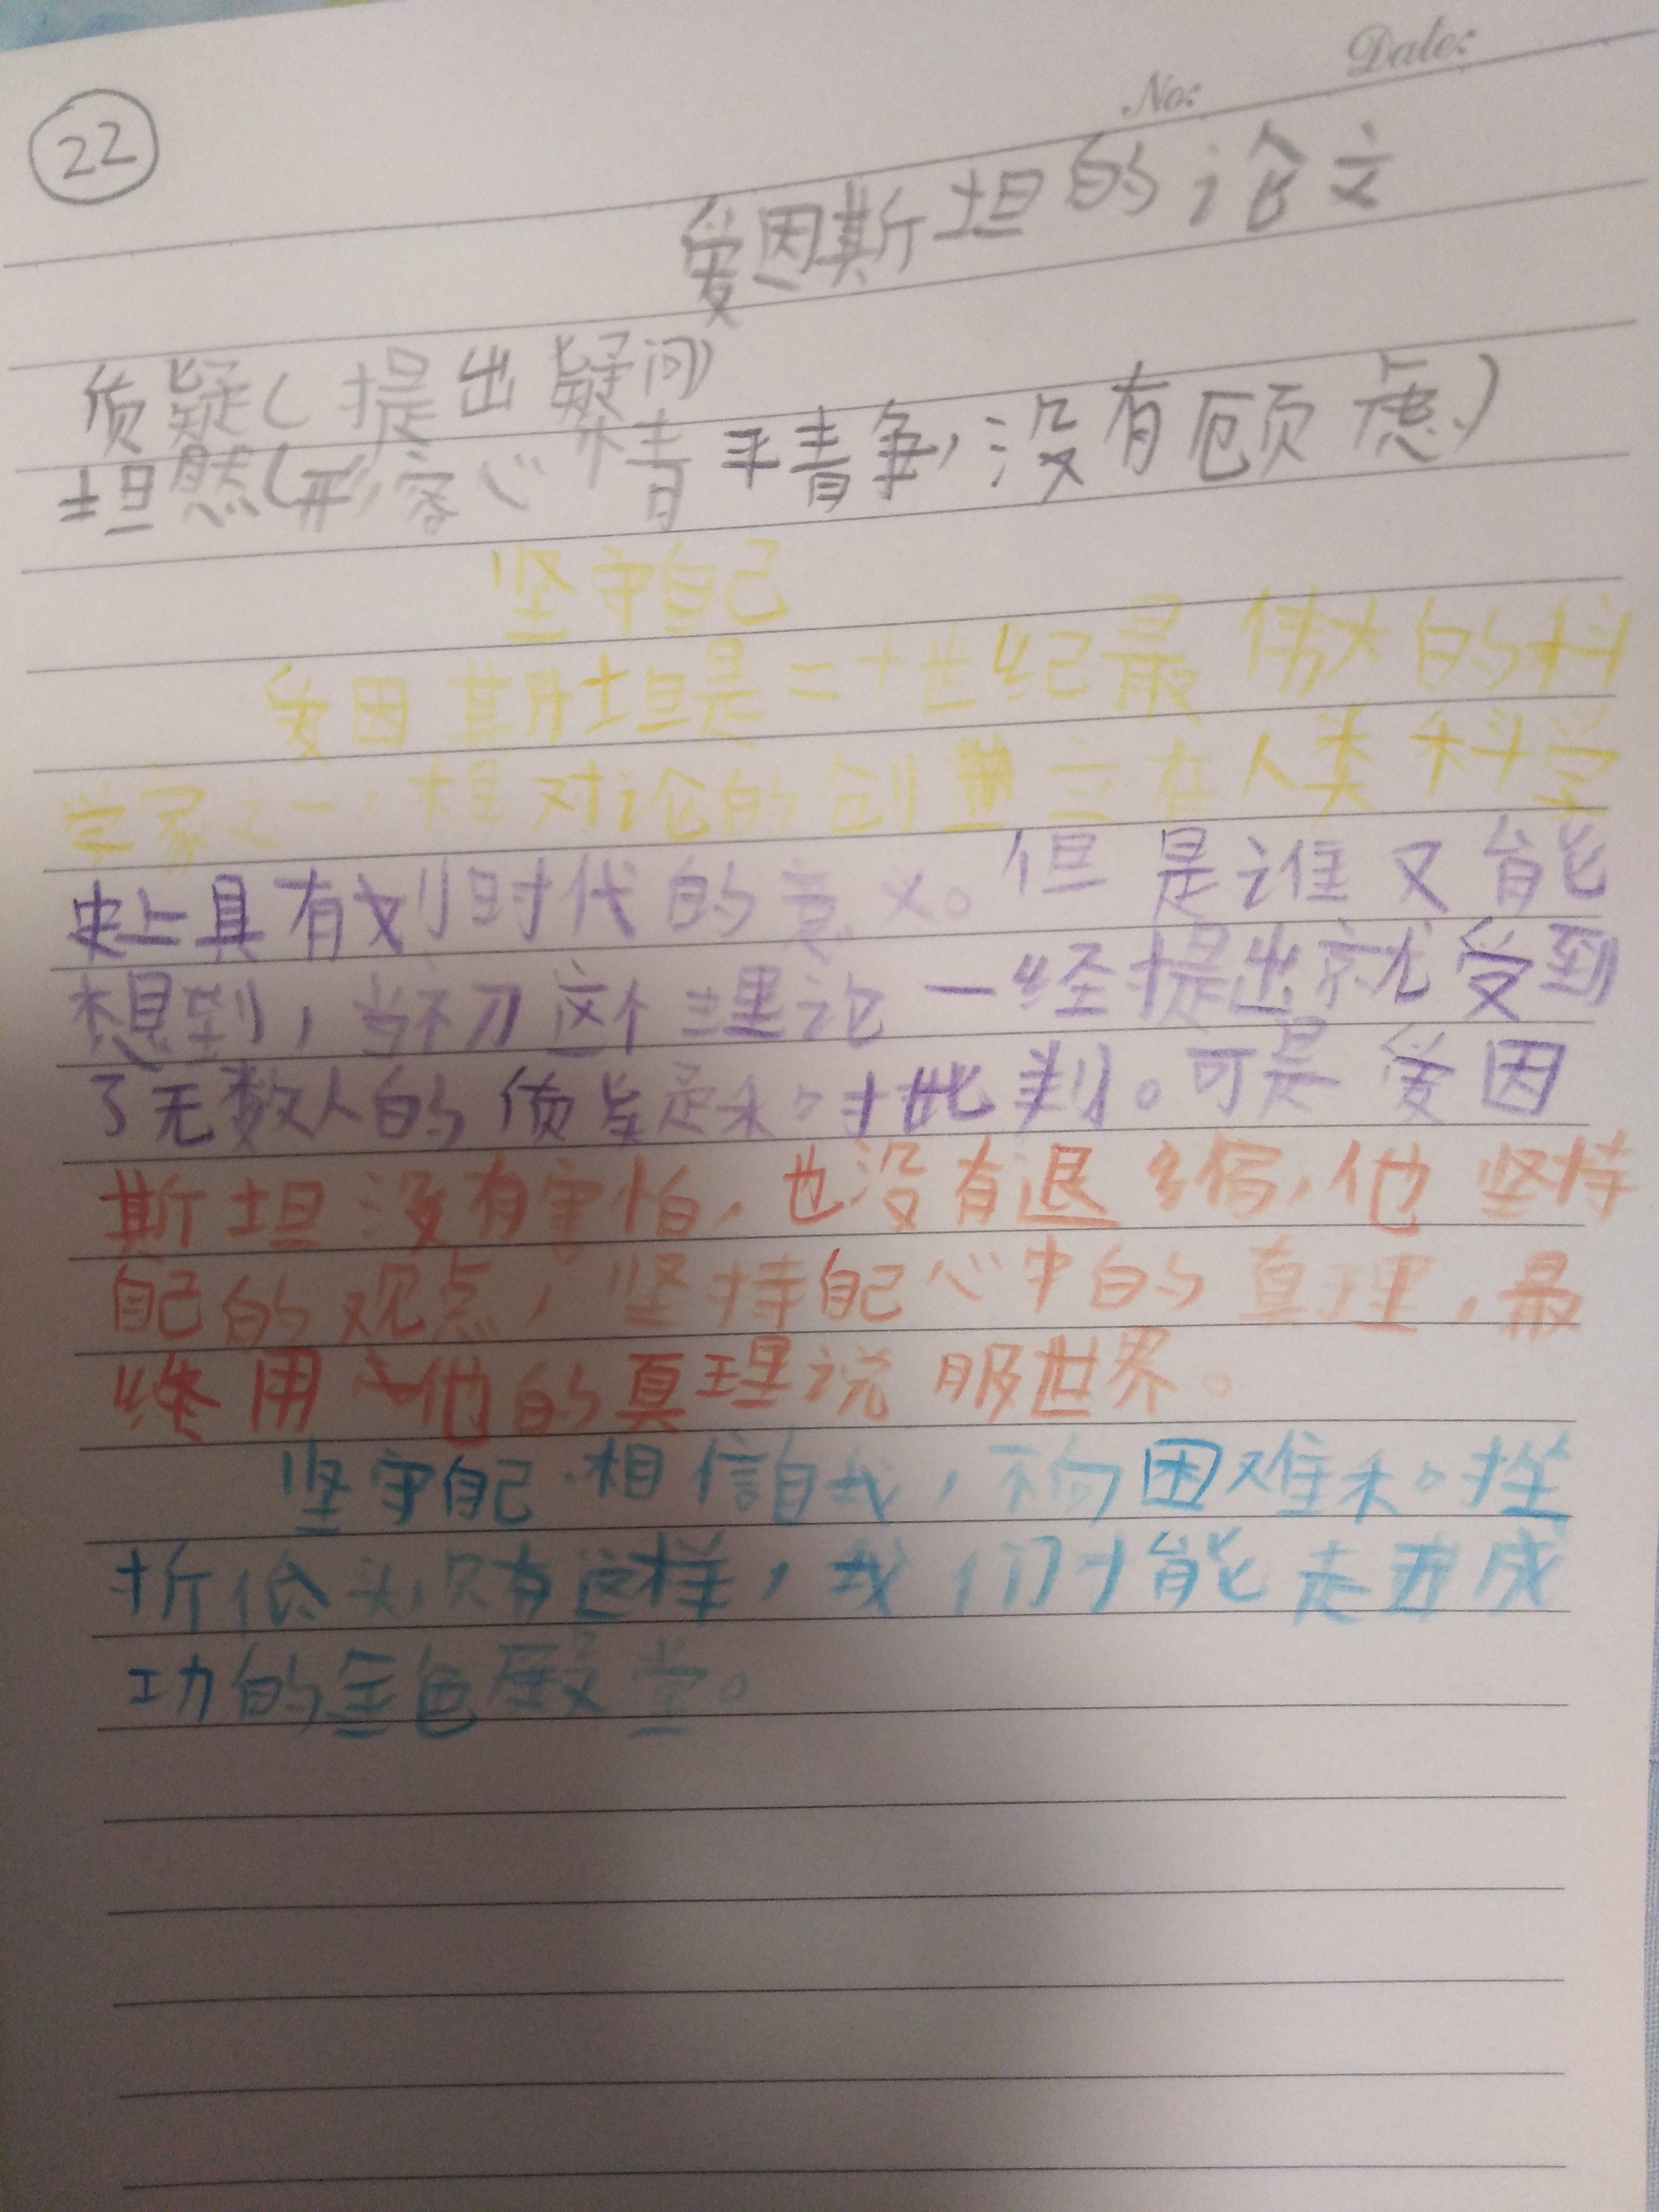 No: Date:
22
爱因斯坦的论文
质疑(提出疑问)
坦然(形容心情平静,没有顾虑)
坚守自己
爱因斯坦是二十世纪最伟大的科
学家之一,相对论的创立在人类科学
史上具有划时代的意义。但是谁又能
想到,当初这个理论一经提出就受到
了无数人的质疑和批判。可是爱因
斯坦没有害怕,也没有退缩,他坚持
自己的观点,坚持自己心中的真理,最
终用他的真理说服世界。
坚守自己.相信自我,不向困难和挫
折低头,只有这样,我们才能走进成
功的金色殿堂。